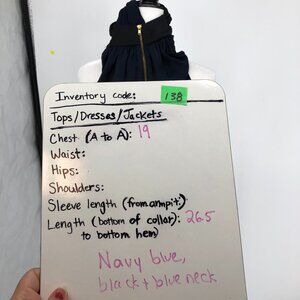 Inventory code: 138
Tops/Dresses/Jackets
Chest (A to A): 19
Waist:
Hips:
Shoulders:
Sleeve length (from armpit:)
Length (bottom of collar): 26.5
to bottom hem)
Navy blue,
black + blue neck